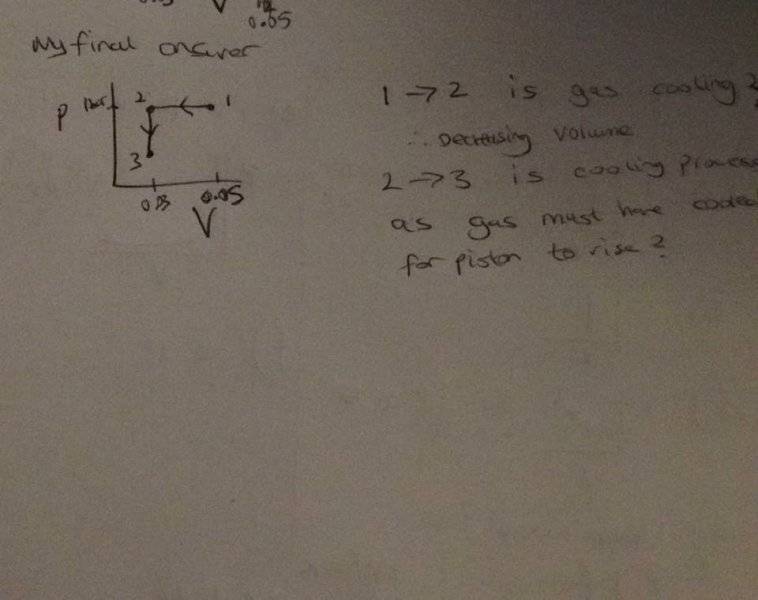 V
0.05
My final answer
1 → 2 is gas cooling?
∴ Decreasing volume
2 → 3 is cooling process
as gas must have cooled
for piston to rise?
P 1bar 2 1
3
0.05
V